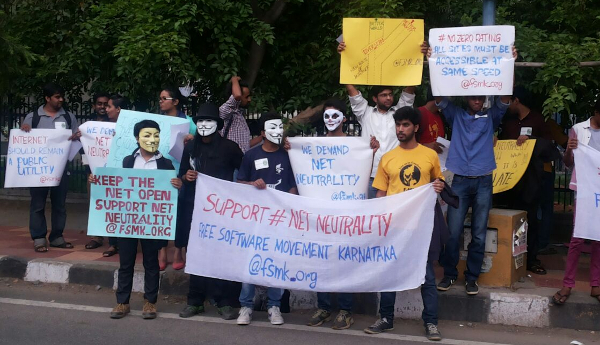 INTERNET
SHOULD REMAIN
A PUBLIC
UTILITY
@fsmk_org
WE DEMAND
NET
NEUTRALITY
KEEP THE
NET OPEN
SUPPORT NET
NEUTRALITY
@FSMK_ORG
WE DEMAND
NET
NEUTRALITY
@fsmk_org
@FSMK_
#NO ZERO RATING
ALL SITES MUST BE
ACCESSIBLE AT
SAME SPEED
@fsmk_org
SUPPORT #NET NEUTRALITY
FREE SOFTWARE MOVEMENT KARNATAKA
@fsmk_org